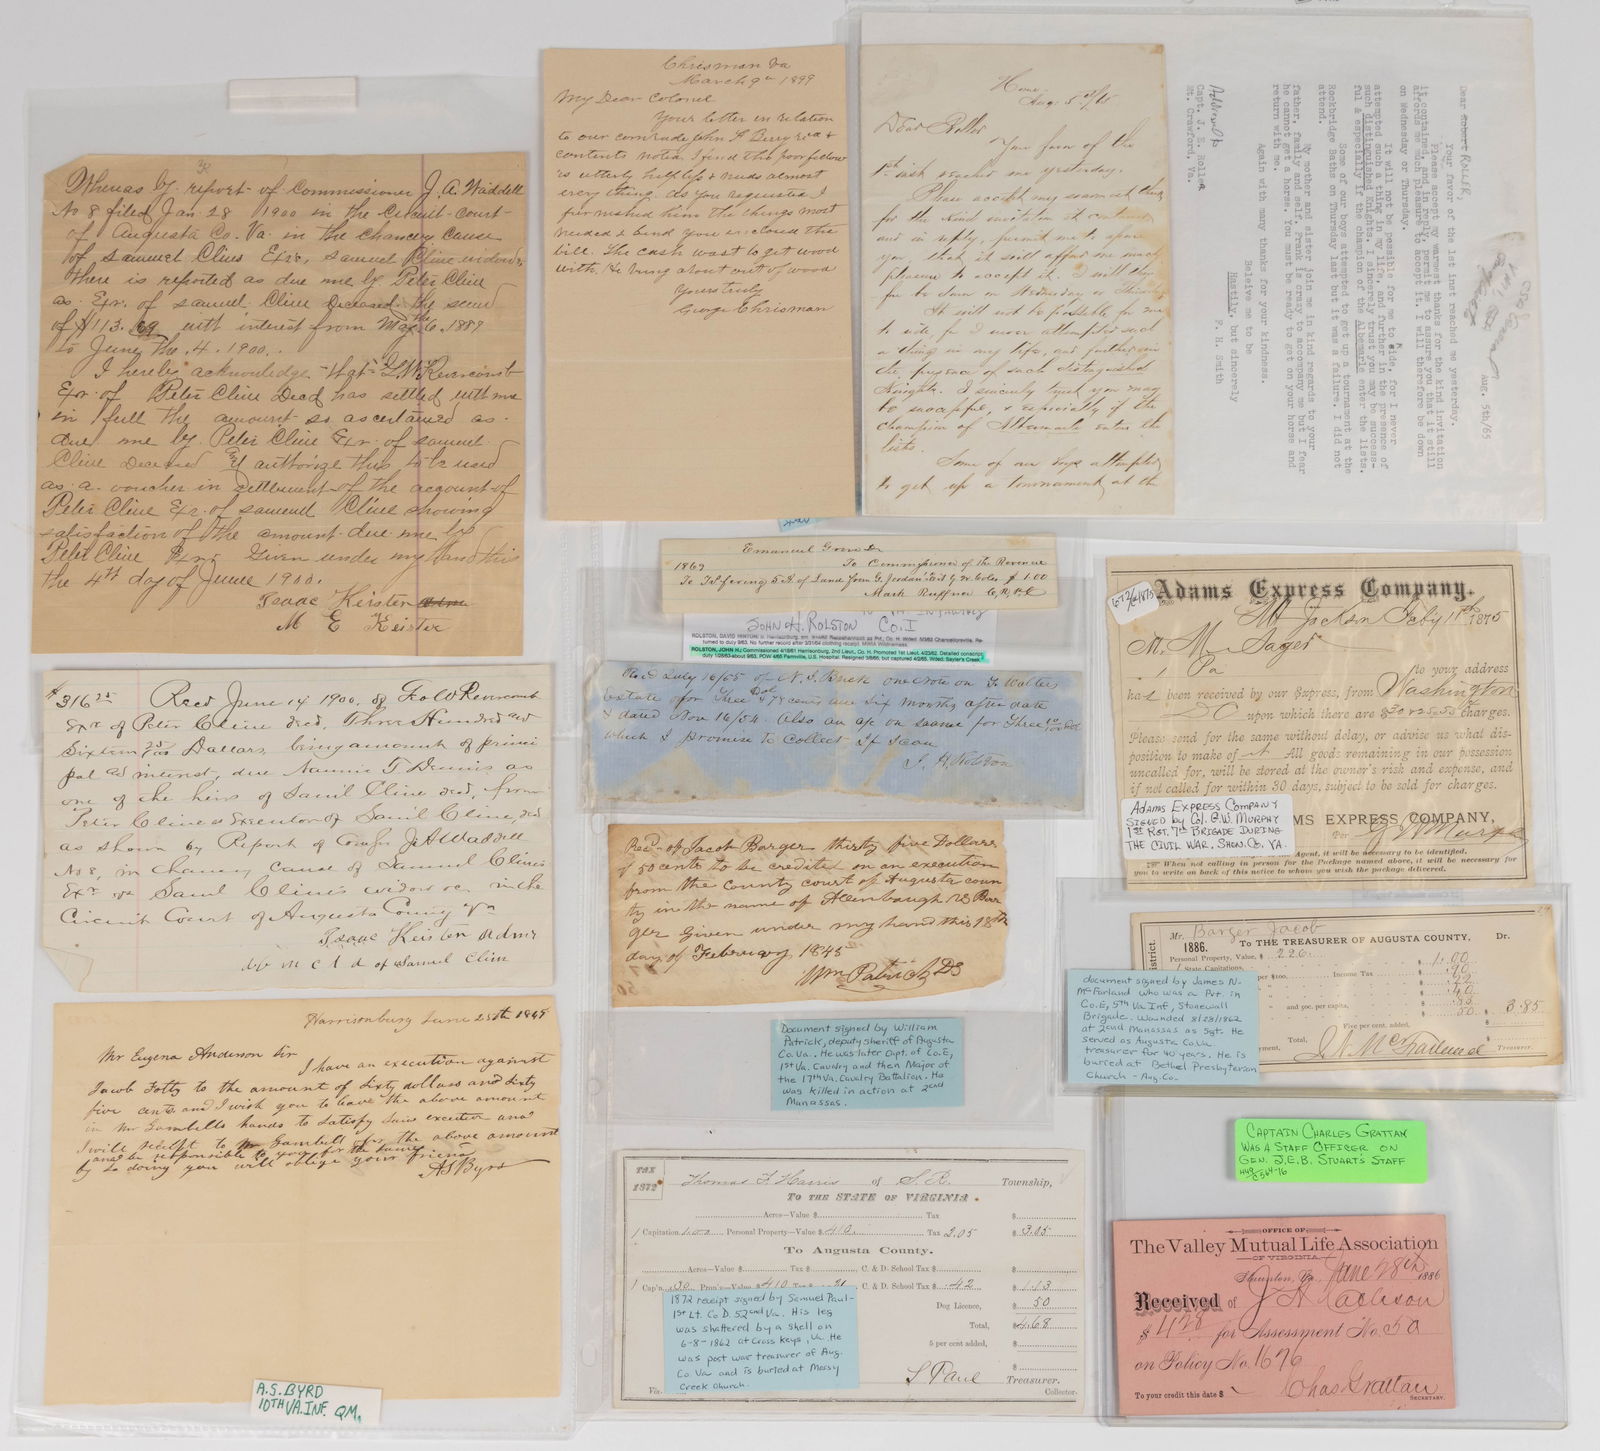 Whereas by report of Commissioner J. A. Waddell
No 8 filed Jan 28 1900 in the Circuit Court
of Augusta Co. Va. in the chancery cause
of Samuel Clines Exr. Samuel Cline widow &c
there is reported as due me by Peter Cline
as Exr. of Samuel Cline Deceased the sum
of $113.69 with interest from May the 6, 1889
to June the 4. 1900.
I hereby acknowledge that
Exr. of Peter Cline Decd has settled with me
in full the amount so ascertained as
due me by Peter Cline Exr. of Samuel
Cline Deceased & authorize this to be used
as a voucher in settlement of the account of
Peter Cline Exr. of Samuel Cline showing
satisfaction of the amount due me by
Peter Cline Exr. Given under my hand this
the 4th day of June 1900.
Isaac Keister
M E Keister
$316 25 Recd June 14 1900 of
Exr of Peter Cline decd. Three Hundred and
Sixteen 25/100 Dollars being amount of princi
pal and interest, due Nannie T. Dennis as
one of the heirs of Saml Cline decd, from
Peter Cline as Executor of Saml Cline, decd
as shown by Report of Comsr J A Waddell
No 8, in chancery cause of Samuel Clines
Exr vs Saml Cline's widow &c, in the
Circuit Court of Augusta County Va
Isaac Keister Admr
of Samuel Cline
Harrisonburg June 25th 1845
Mr Eugena Anderson Sir
I have an execution against
Jacob Fotty to the amount of Sixty dollars and Sixty
five cents and I wish you to leave the above amount
in Mr Gambells hands to Satisfy Said execution and
I will receipt to Mr Gambell for the above amount
and be responsible to you for the same
by so doing you will oblige your friend
A S Byrd
A.S. BYRD
10TH VA. INF. QM.
Chrisman Va
March 9th 1899
My Dear Colonel
Your letter in relation
to our comrade John F Berry recd &
contents noted. I find this poor fellow
is utterly helpless & needs almost
every thing. As you requested I
furnished him the things most
needed & send you enclosed the
bill. The cash was to get wood
with. He being about out of wood
Yours truly
George Chrisman
Home
Aug. 5th/65
Dear Roller
Your favor of the
1st inst reached me yesterday.
Please accept my warmest thanks
for the kind invitation it contained
and in reply, permit me to assure
you, that it will afford me much
pleasure to accept it. I will there
fore be down on Wednesday or Thursday
It will not be possible for me
to ride for I never attempted such
a thing in my life, and further in
the presence of such distinguished
Knights. I sincerely trust you may
be successful, & especially if the
champion of Albemarle enters the
lists.
Some of our boys attempted
to get up a tournament at the
Aug. 5th/65
Dear Robert ROLLER,
Your favor of the 1st inst reached me yesterday.
Please accept my warmest thanks for the kind invitation
it contained, and in reply, permit me to assure you that it will
affords me much pleasure to accept it. I will therefore be down
on Wednesday or Thursday.
It will not be possible for me to ride, for I never
attempted such a thing in my life, and further in the presence of
such distinguished Knights. I sincerely trust you may be success-
ful & especially if the champion of the Albemarle enter the lists.
Some of our boys attempted to get up a tournament at the
Rockbridge Baths on Thursday last but it was a failure. I did not
attend.
My mother and sister join me in kind regards to your
father, family and self. Frank is crazy to accompany me but I fear
he cannot get a horse. You must be ready to get on your horse and
return with me.
Again with many thanks for your kindness.
Beleive me to be
Hastily, but sincerely
P. H. Smith
Addressed to
Capt. J. E. Roller
Mt. Crawford, Va.
Emanuel Grove Dr
1869 To Commissioner of the Revenue
To Tsfering 5 A. of Land from G. Jordan $1.00
Mark Ruffner C,R,P,C
JOHN H. ROLSTON CO. I
ROLSTON, JOHN H.: Commissioned 4/18/61 Harrisonburg, 2nd Lieut., Co. H. Promoted 1st Lieut. 4/23/62. Detailed conscript
duty 1/28/63-about 9/63. POW 4/65 Farmville, U.S. Hospital. Resigned 3/8/65, but captured 4/2/65. Wded: Sayler's Creek
Recd July 16/55 of N. I. Buck one note on J. Walters
estate for Three Dol & 75 cents due Six months after date
& dated Nov 16/54. Also an a/c on same for Three
which I promise to collect if I can
J. H. Rolston
Recd of Jacob Barger thirty five Dollars
& 50 cents to be credited on an execution
from the County court of Augusta coun
ty in the name of Alenbaugh vs Bar
ger Given under my hand this 18th
day of February 1845
Wm Patrick DS
Document signed by William
Patrick, deputy sheriff of Augusta
Co. Va. He was later Capt. of Co. E,
1st Va. Cavalry and then Major of
the 17th Va. Cavalry Battalion. He
was killed in action at 2nd
Manassas.
TAX
1872
Thomas F. Harris of S. R. Township,
TO THE STATE OF VIRGINIA.
Acres—Value $ Tax $
1 Capitation 1.00 Personal Property—Value $ 410 Tax 2.05 $ 3.05
To Augusta County.
Acres—Value $ Tax $ C. & D. School Tax $ $
1 Cap'n .50 Pers'l—Value $410 Tax .21 C. & D. School Tax $ .42 $ 1.13
Dog Licence, $ 50
Total, $ 4.68
5 per cent added, $
$
S Paul Treasurer.
Collector.
1872 receipt signed by Samuel Paul-
1st Lt. Co D. 52nd Va. His leg
was shattered by a shell on
6-8-1862 at Cross Keys, Va. He
was post war treasurer of Aug.
Co. Va and is buried at Mossy
Creek Church.
6-72/C2187S
Adams Express Company.
Mt Jackson Feby 11th 1875
M. M Sager
1 Pa to your address
has been received by our Express, from Washington
DC upon which there are $30 & 25.55 Charges.
Please send for the same without delay, or advise us what dis-
position to make of it. All goods remaining in our possession
uncalled for, will be stored at the owner's risk and expense, and
if not called for within 30 days, subject to be sold for charges.
ADAMS EXPRESS COMPANY
SIGNED by COL. G.W. MURPHY
1ST RGT. 7TH BRIGADE DURING
THE CIVIL WAR. SHEN. CO. VA.
MS EXPRESS COMPANY,
Per G W Murphy
Agent, it will be necessary to be identified.
When not calling in person for the Package named above, it will be necessary for
you to write on back of this notice to whom you wish the package delivered.
Mr. Barger Jacob
1886. To THE TREASURER OF AUGUSTA COUNTY, Dr.
Personal Property, Value, $ 226. $ 1.00
1 State Capitations, .90
per $100. Income Tax .22
.40
and goc, per capita, .83
50 $ 3.85
Five per cent. added,
Total, $
J. N. McFarland Treasurer.
document signed by James N.
McFarland who was a Pvt. in
Co. E, 5th Va. Inf, Stonewall
Brigade. Wounded 8/28/1862
at 2nd Manassas as Sgt. He
served as Augusta Co. Va.
treasurer for 40 years. He is
buried at Bethel Presbyterian
Church - Aug. Co.
CAPTAIN CHARLES GRATTAN
WAS A STAFF OFFICER ON
GEN. J.E.B. STUART'S STAFF
OFFICE OF
The Valley Mutual Life Association
OF VIRGINIA
Staunton, Va., June 28th 1886
Received of J H Rachison
$ 4 28 for Assessment No. 50
on Policy No. 1676
To your credit this date $
Chas Grattan
SECRETARY.